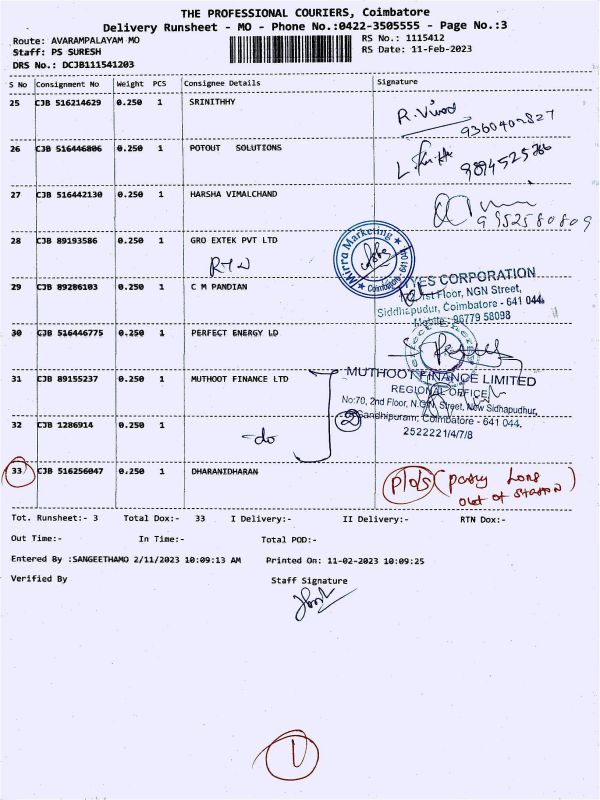 THE PROFESSIONAL COURIERS, Coimbatore
Delivery Runsheet - MO - Phone No.:0422-3505555 - Page No.:3
Route: AVARAMPALAYAM MO RS No.: 1115412
Staff: PS SURESH RS Date: 11-Feb-2023
DRS No.: DCJB111541203
S No Consignment No Weight PCS Consignee Details Signature
25 CJB 516214629 0.250 1 SRINITHHY
R. Vinod
9360409827
26 CJB 516446806 0.250 1 POTOUT SOLUTIONS
9894525766
27 CJB 516442130 0.250 1 HARSHA VIMALCHAND
9952580809
28 CJB 89193586 0.250 1 GRO EXTEK PVT LTD
Mirra Marketing
Coimbatore - 641 045
29 CJB 89286103 0.250 1 C M PANDIAN
YES CORPORATION
1st Floor, NGN Street,
Siddhapudur, Coimbatore - 641 044.
Mobile: 96779 58098
30 CJB 516446775 0.250 1 PERFECT ENERGY LD
31 CJB 89155237 0.250 1 MUTHOOT FINANCE LTD
MUTHOOT FINANCE LIMITED
REGIONAL OFFICE
No:70, 2nd Floor, N.G.N. Street, New Sidhapudhur,
Gandhipuram, Coimbatore - 641 044.
2522221/4/7/8
32 CJB 1286914 0.250 1
-do
2
33 CJB 516256047 0.250 1 DHARANIDHARAN
P/o/s (party Long
out of station)
Tot. Runsheet:- 3 Total Dox:- 33 I Delivery:- II Delivery:- RTN Dox:-
Out Time:- In Time:- Total POD:-
Entered By :SANGEETHAMO 2/11/2023 10:09:13 AM Printed On: 11-02-2023 10:09:25
Verified By Staff Signature
1